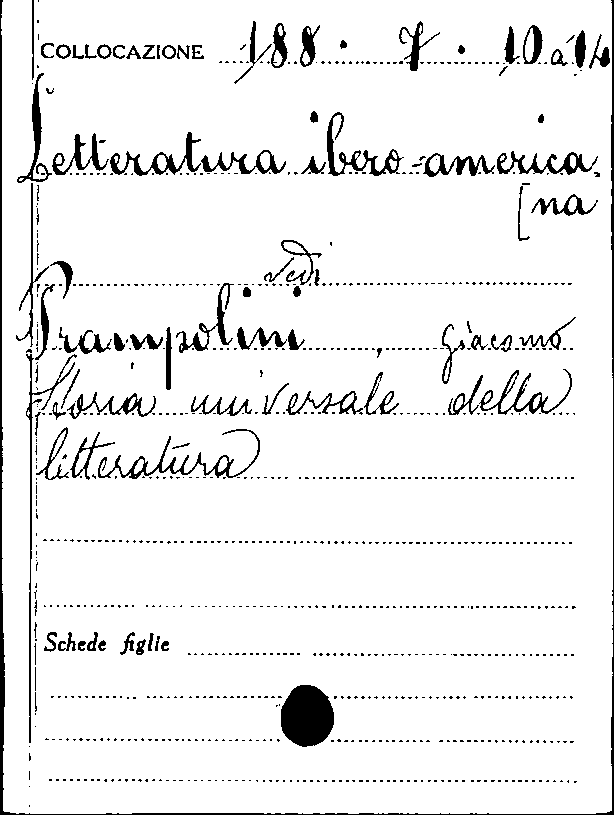 COLLOCAZIONE 188. 7. 10 a 14
Letteratura ibero-america.
[na
vedi
Prampolini, Giacomo
Storia universale della
litteratura
Schede figlie